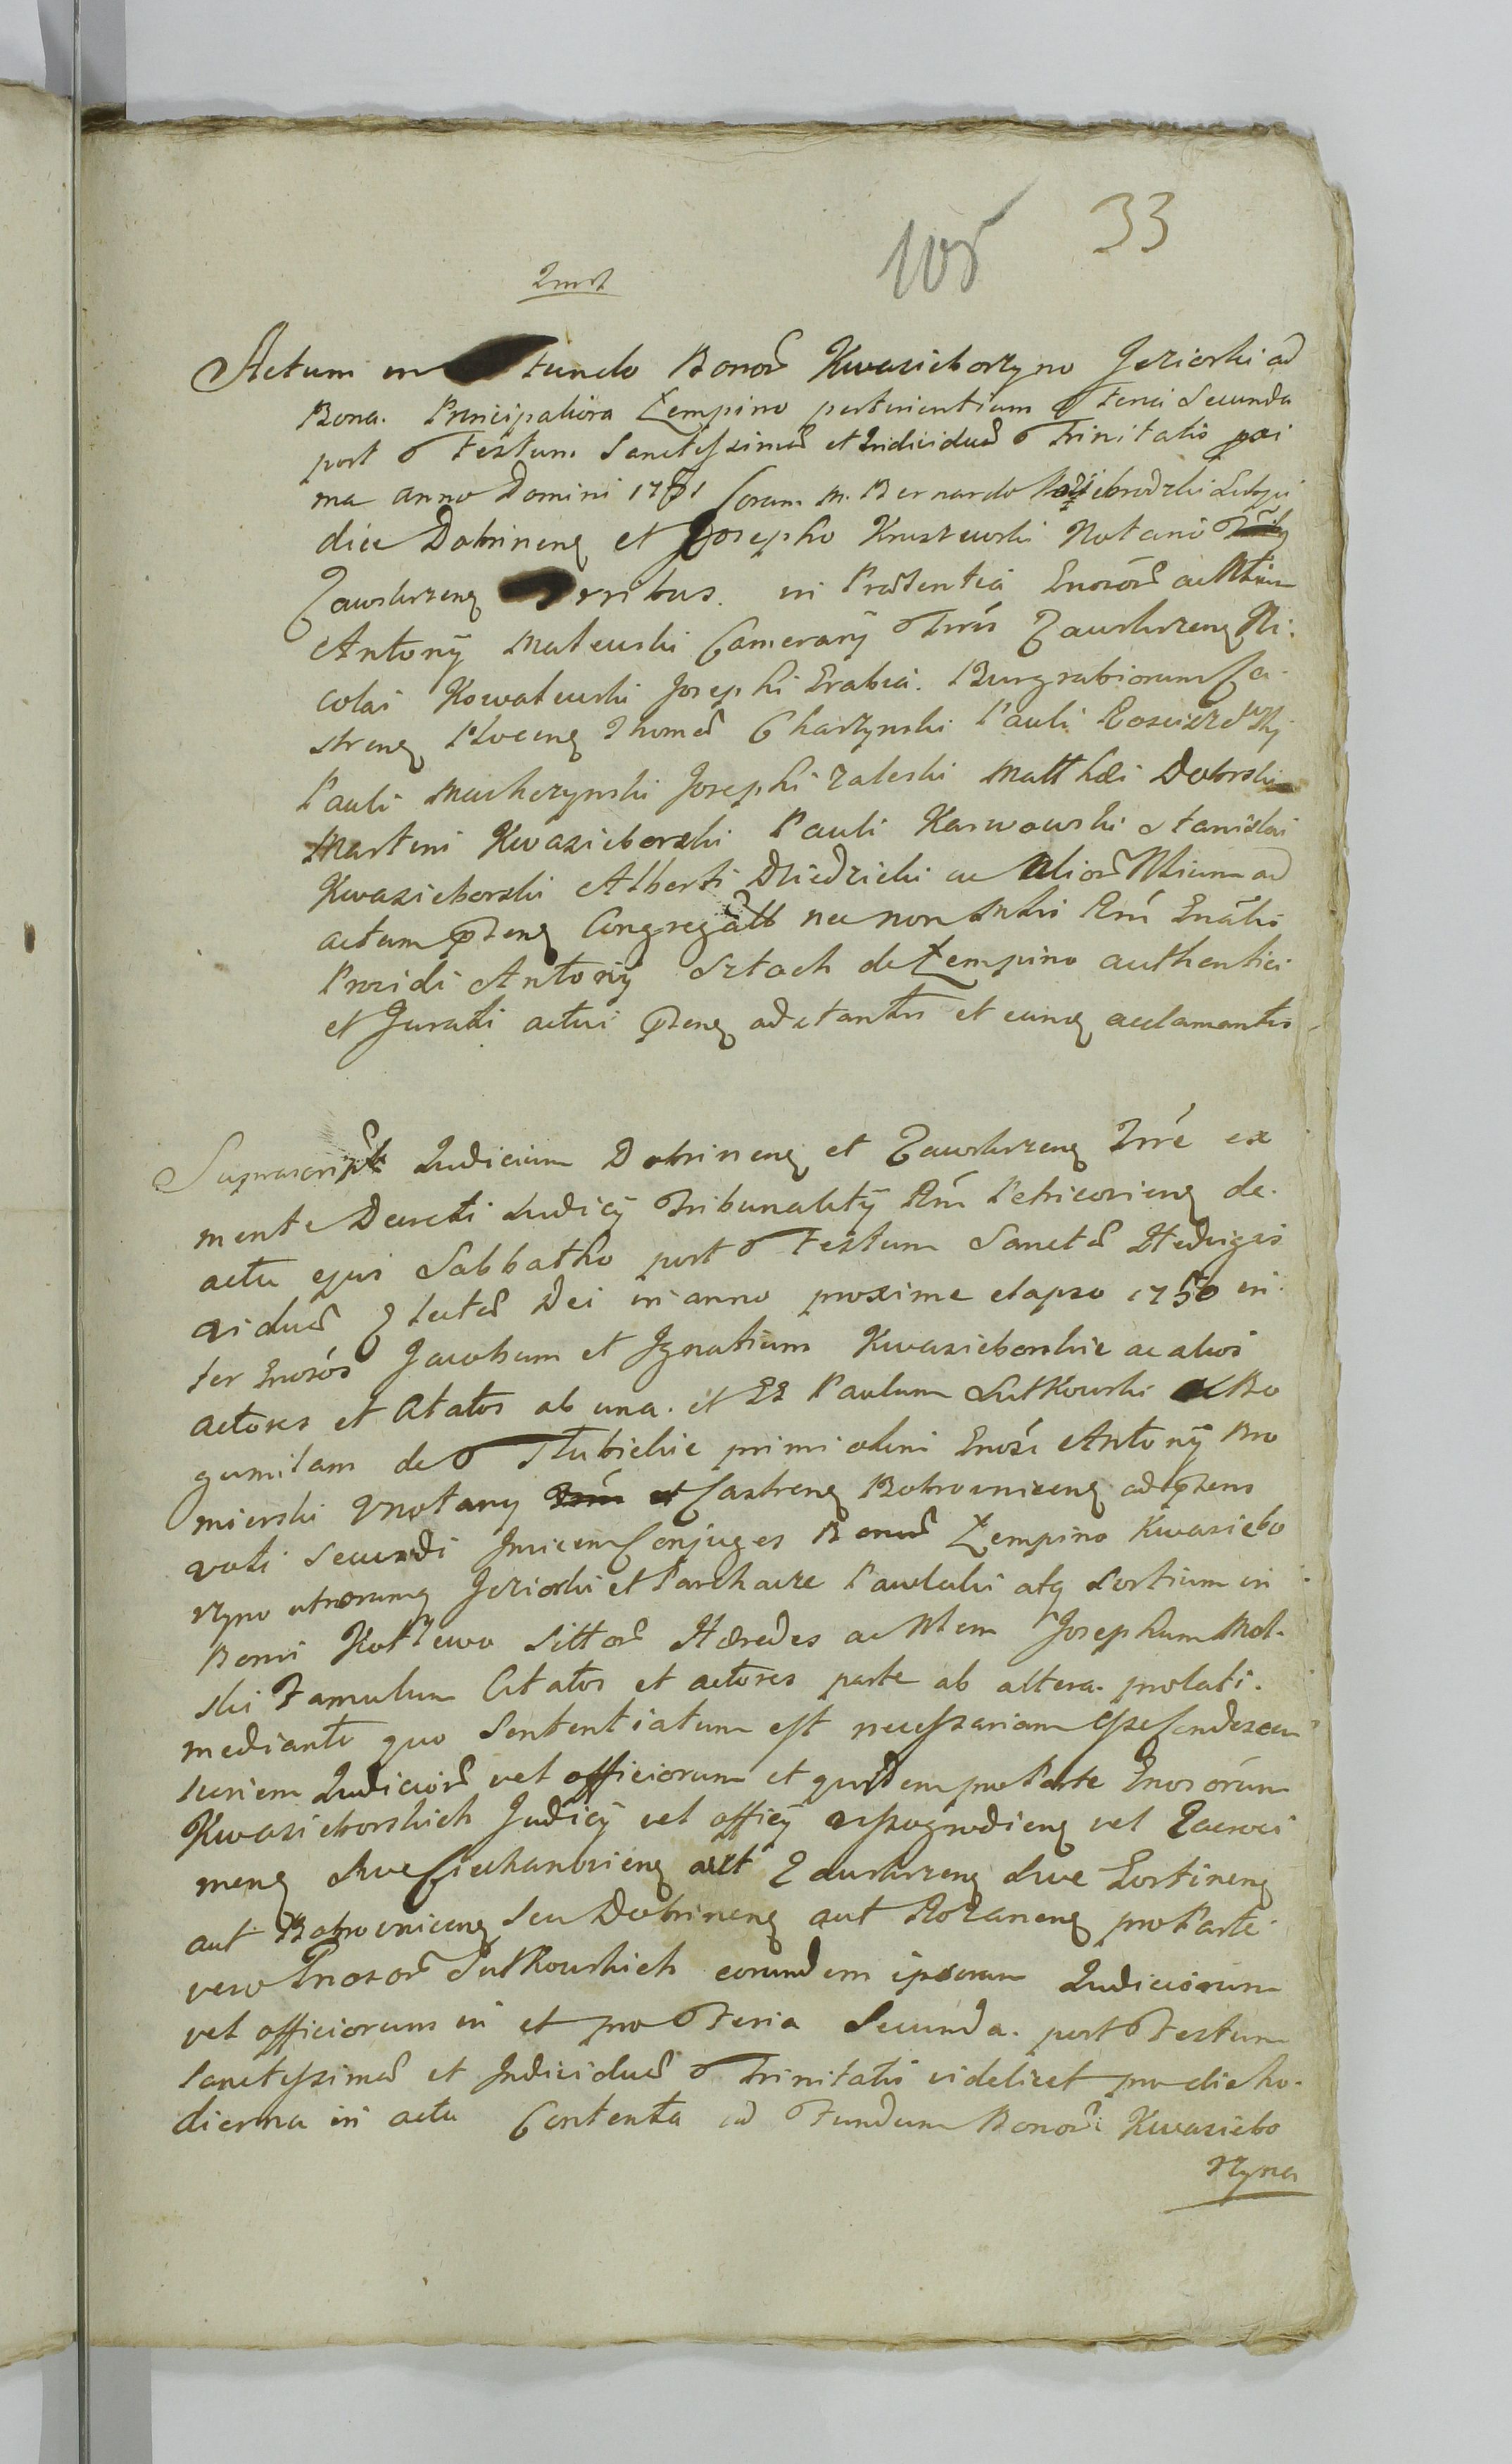 33
105
2mst
Actum in Fundo Bonor̃ Kwasieborzyno Jeziorki ad
Bona. Principaliora Łempino pertinentium Feria Secunda
post Festum Sanctissimæ et Individuæ Trinitatis pri
ma anno Domini 1751 Coram M. Bernardo Subju
dice Dobrinenq et Josepho Kruszewski Notario
Zawskrzenq rribus. in Præsentia Gnosór̃ ac Nblium
Antonÿ Mateuski Camerarÿ Trrís Zawskrzenq Ni.
colai Kowalewski Josephi Grabia. Burgrabiorum Ca-
strenq Plocenq Thomæ Charzynski Pauli
Pauli Machczynski Josephi Zaleski Matthæi Dobrski
Martini Kwasieborski Pauli Karwowski Stanislai
Kwasieborski Alberti Dziedzicki ac Alior̃ Nblium ad
actum p̃senq Congregatt nec non Mstri Rni Gnãlis
Providi Antonÿ Sztach de Łempino authentici
et Jurati actui p̃senq adstantis et eumq acclamantis

Suprascript Judicium Dobrinenq et Zawskrzenq Trré ex
mente Decreti Judicÿ Tribunalitÿ Rni Petricovienq de.
actu ejus Sabbatho post Festum Sanctæ Hedvigis
viduæ Electæ Dei in anno proxime elapso 1750 in.
ter Gnosós Jacobum et Ignatium Kwasieborskie ac alios
actores et Citatos ab una. et GG Paulum Sutkowski ac Bo
gumilam de Słubickie primi olim Gnosi Antonÿ Bro
mierski Vnotary Castrenq Bobrownicenq ad p̃sens
voti Secundi Invicem Conjuges Bonor̃ Łempino Kwasiebo
rzyno utrorumq Jeziorki et Parchacze Pawlaki atq Sortium in
Bonis Kotlewo Sittor̃ Hæredes ac Nblem Josephum Mol-
ski Famulum Citatos et actores parte ab altera. prolati.
mediante quo Sententiatum est necessariam esse Condescen
sionem Judicior̃ vel officiorum et quidem pro Parte Gnosórum
Kwasieborskich Judicÿ vel officÿ wyszogrodienq vel Zacroci
menq sive Ciechanovienq aut Zawskrzenq sive Gostinenq
aut Bobrownicenq Seu Dobrinenq aut Rozanenq pro Parte.
vero Gnosor̃ Sutkowskich eorumdem ipsorum Judiciorum
vel officiorum in et pro Feria Secunda. post Festum
Sanctissimæ et Individuæ Trinitatis videlicet pro die ho-
dierna in actu Contenta ad Fundum Bonor̃ Kwasiebo
rzyna